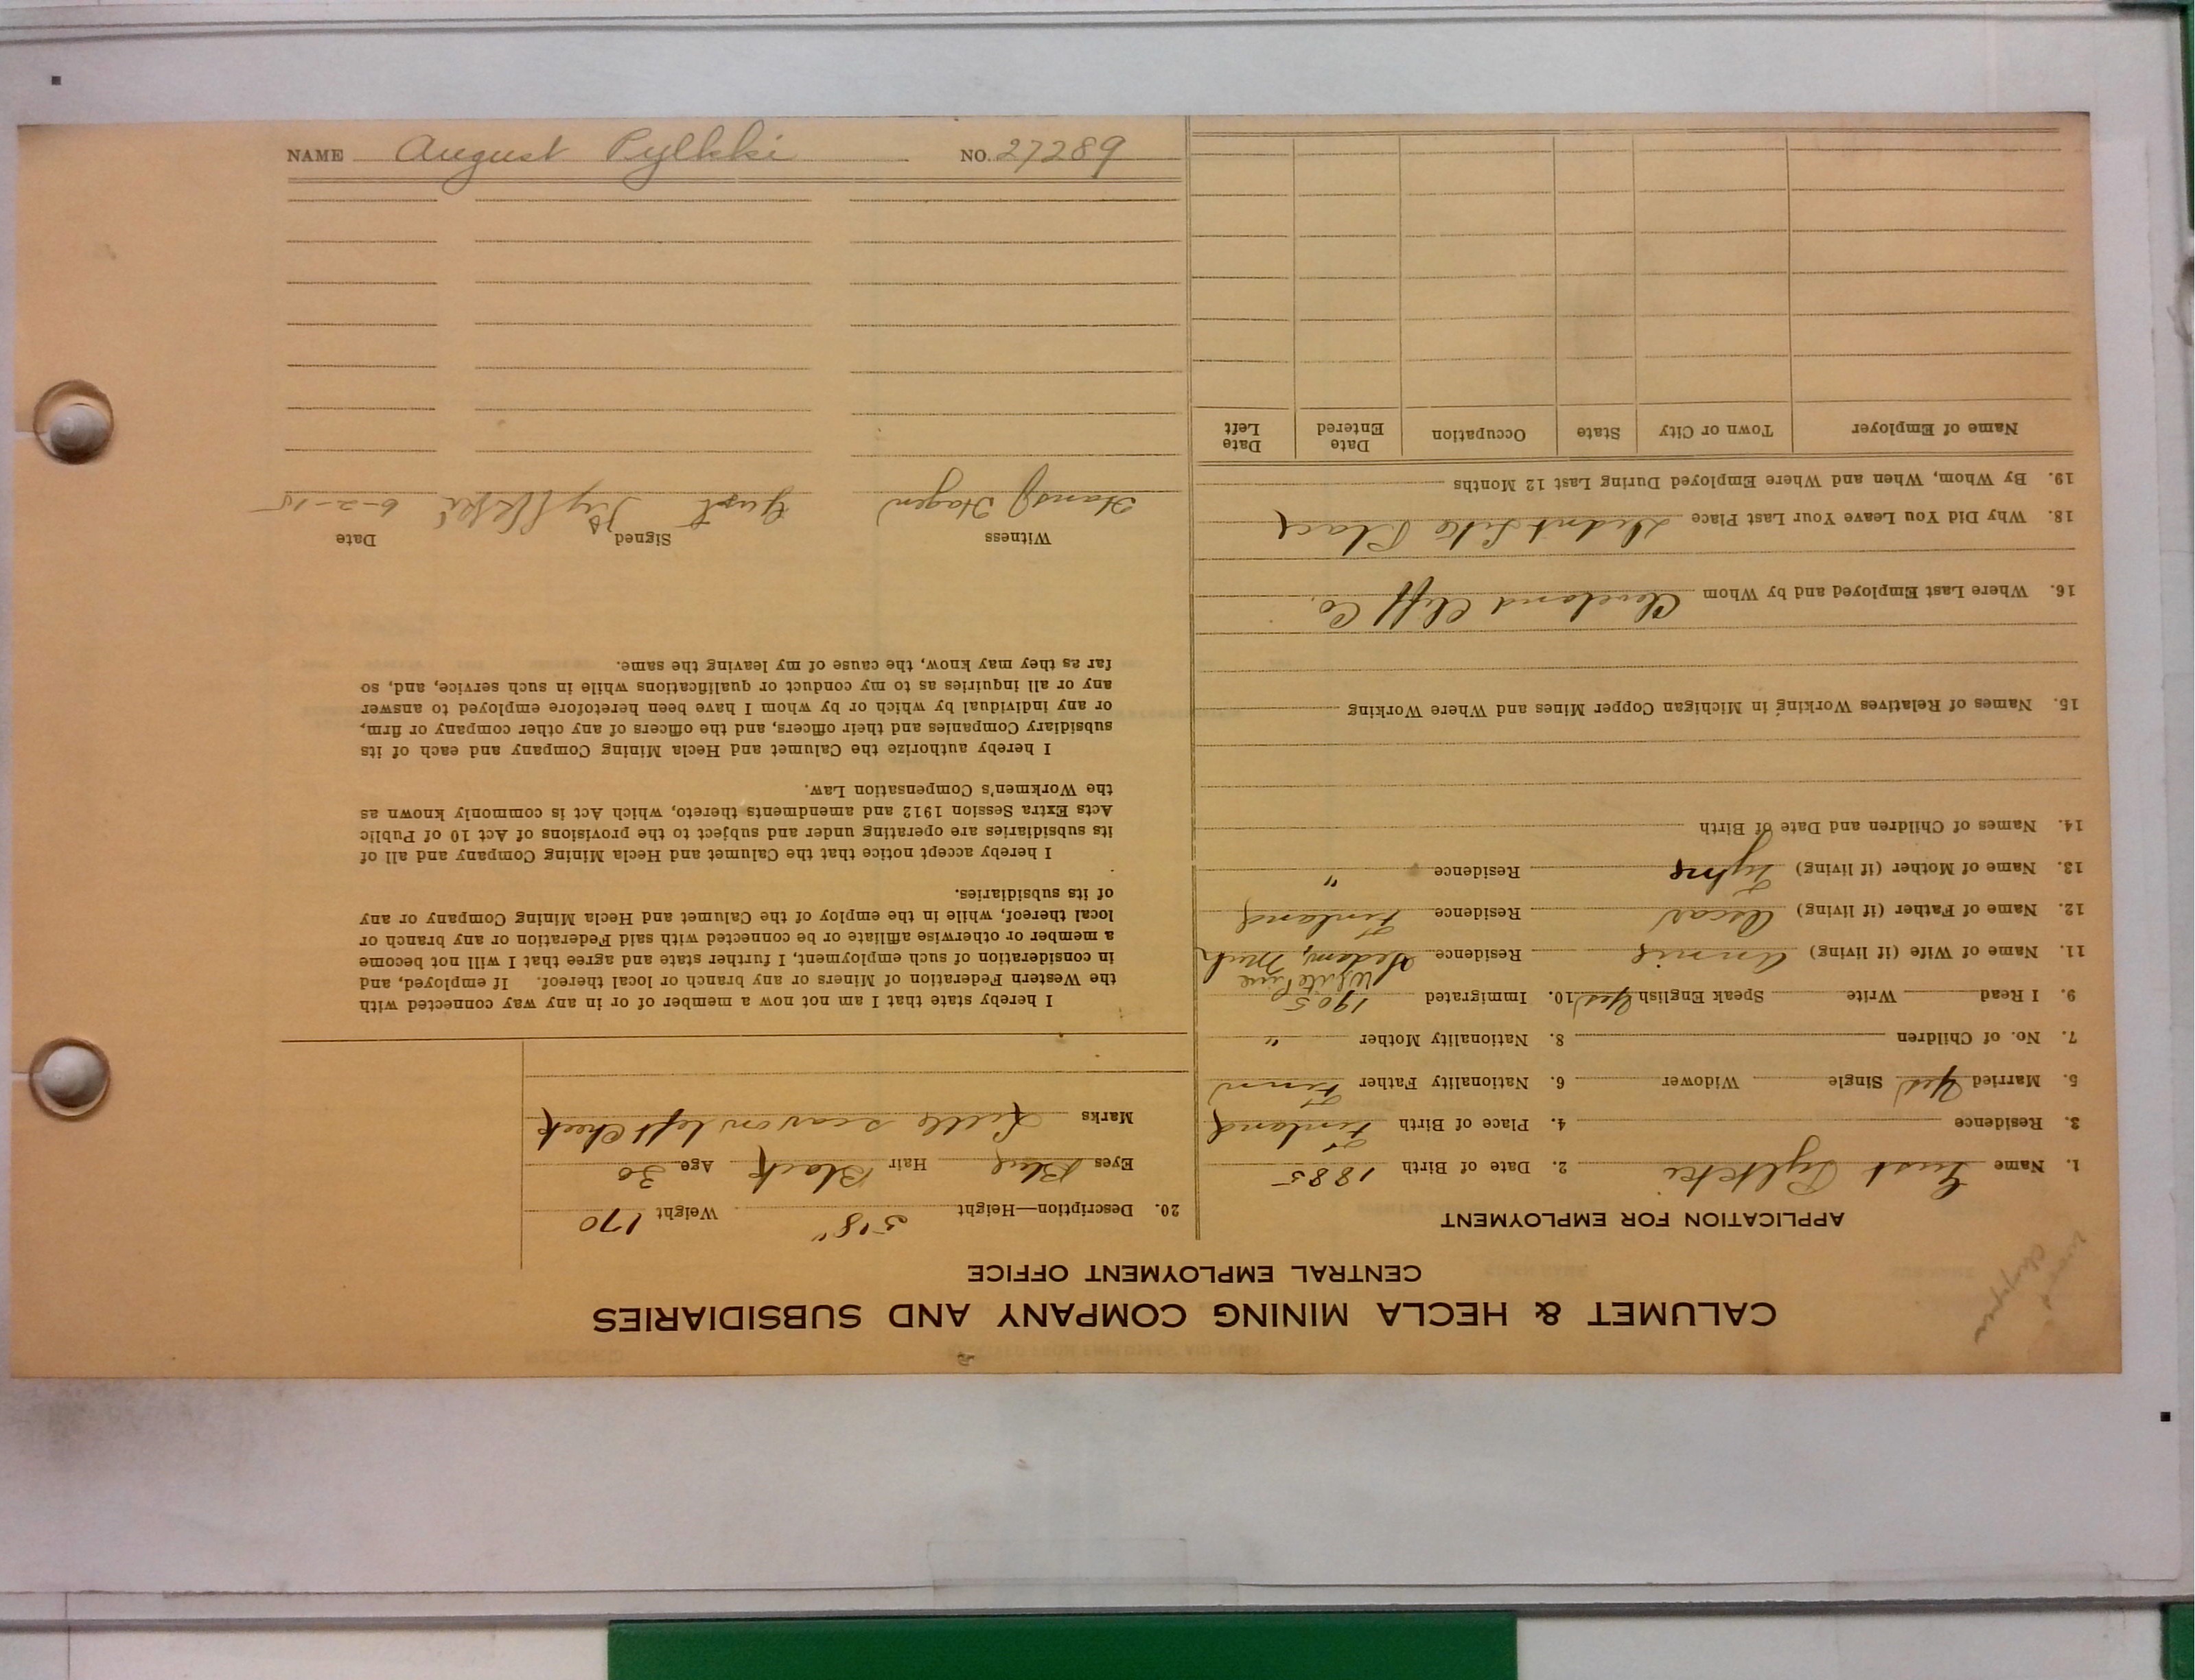 NAME August Pylkki NO. 27289
CALUMET & HECLA MINING COMPANY AND SUBSIDIARIES
CENTRAL EMPLOYMENT OFFICE
APPLICATION FOR EMPLOYMENT
1. Name Gust Pylkki 2. Date of Birth 1885
3. Residence 4. Place of Birth Finland
5. Married Yes Single Widower 6. Nationality Father Finn
7. No. of Children 8. Nationality Mother "
9. I Read Write Speak English Yes 10. Immigrated 1905
White Pine
11. Name of Wife (if living) Annie Residence Mich
12. Name of Father (if living) Oscar Residence Finland
13. Name of Mother (if living) Residence "
14. Names of Children and Date of Birth
15. Names of Relatives Working in Michigan Copper Mines and Where Working
16. Where Last Employed and by Whom Cleveland Cliff Co.
18. Why Did You Leave Your Last Place Didnt Like Place
19. By Whom, When and Where Employed During Last 12 Months
Name of Employer Town or City State Occupation Date Entered Date Left
20. Description—Height 5'8" Weight 170
Eyes Blue Hair Black Age 30
Marks Little scar on left Cheek
I hereby state that I am not now a member of or in any way connected with
the Western Federation of Miners or any branch or local thereof. If employed, and
in consideration of such employment, I further state and agree that I will not become
a member or otherwise affiliate or be connected with said Federation or any branch or
local thereof, while in the employ of the Calumet and Hecla Mining Company or any
of its subsidiaries.
I hereby accept notice that the Calumet and Hecla Mining Company and all of
its subsidiaries are operating under and subject to the provisions of Act 10 of Public
Acts Extra Session 1912 and amendments thereto, which Act is commonly known as
the Workmen's Compensation Law.
I hereby authorize the Calumet and Hecla Mining Company and each of its
subsidiary Companies and their officers, and the officers of any other company or firm,
or any individual by which or by whom I have been heretofore employed to answer
any or all inquiries as to my conduct or qualifications while in such service, and, so
far as they may know, the cause of my leaving the same.
Witness Signed Date
Hans J Hagen Gust Pylkki 6-2-15